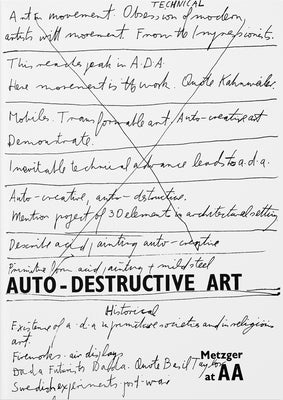 TECHNICAL
Art movement. Obsession of modern
artists with movement. From the Impressionists.
This reaches peak in A.D.A.
Here movement is the work. Quote Kahnweiler.
Mobiles. Transformable art, Auto-creative art
Demonstrate.
Inevitable technical advance leads to a.d.a.
Auto-creative, auto-destructive.
Mention project of 3D element in architectural setting
Describe acid painting auto-creative
Primitive form acid painting + mild steel
AUTO-DESTRUCTIVE ART
Historical
Existence of a.d.a in primitive societies and in religious
art.
Fireworks. air displays
Dada Futurists Balla. Quote Basil Taylor
Swedish experiments post-war
Metzger
at AA